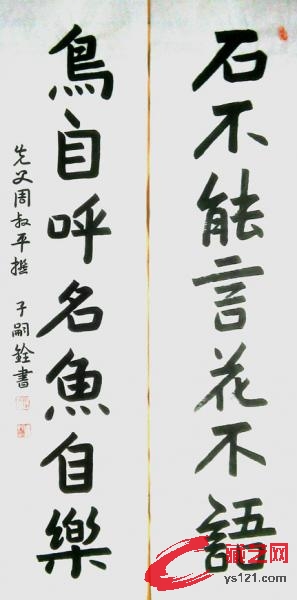 石不能言花不語
鳥自呼名魚自樂
先父周叔平撰 子嗣銓書
藏艺网
ys121.com